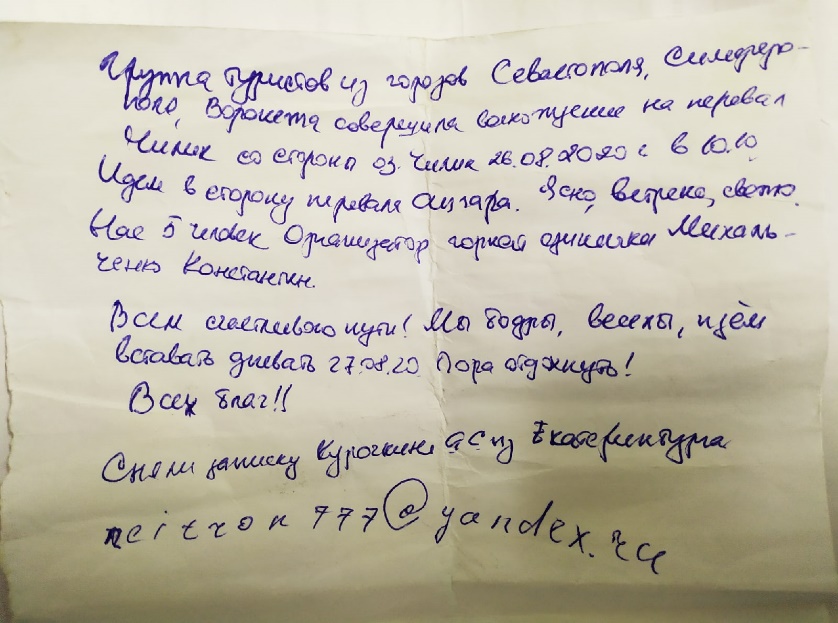 Группа туристов из городов Севастополя, Симферо-
поля, Воронежа совершила восхождение на перевал
Чилик со стороны оз. Чилик 26.08.2020 г в 10.10
Идем в сторону перевала Ацгара. Ясно, ветрено, светло.
Нас 5 человек Организатор горной Михаль-
ченко Константин.
Всем счастливого пути! Мы бодры, веселы, идём
вставать дневать 27.08.20 Пора отдохнуть!
Всех благ!!
Сняли записку Курочкины из Екатеринбурга
neitron777@yandex.ru